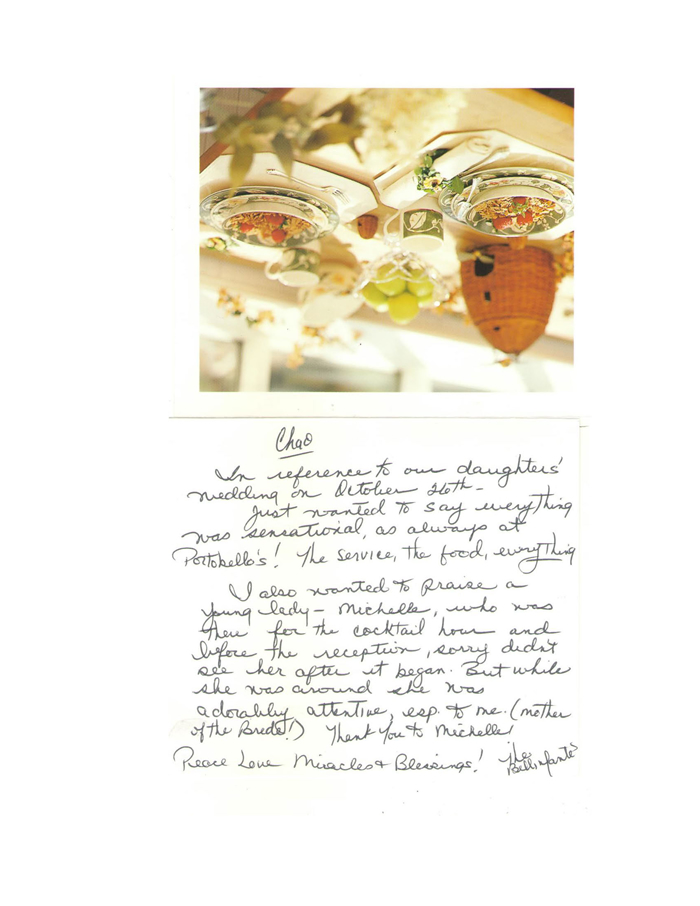 Chao
In reference to our daughters'
wedding on October 26th-
Just wanted to say everything
was sensational, as always at
Portobello's! The service, the food, everything
I also wanted to praise a
young lady - Michelle, who was
there for the cocktail hour and
before the reception, sorry didn't
see her after it began. But while
she was around she was
adorably attentive, esp. to me. (mother
of the Bride!) Thank You to Michelle!
Peace Love Miracles + Blessings! The
Bellinfante's